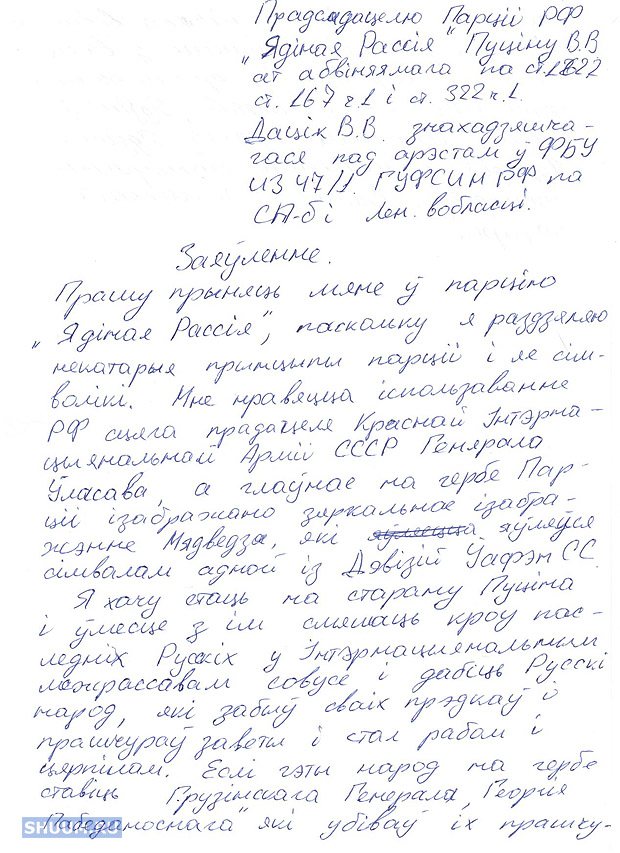 Прадсядацелю Парціі РФ
„Ядіная Рассія" Пуціну В.В
ат абвіняямага па ст.
ст. 167 ч.1 і ст. 322 ч.1.
Дацік В.В. знахадзяшча-
гася пад арэстам ў ФБУ
ИЗ 47/1. ГУФСИН РФ па
СП-б і Лен. вобласці.
Заяўленне.
Прашу прыняць мяне ў парцію
„Ядіная Рассія", паскольку я раздзяляю
некатарыя прынцыпы парціі і яе сім-
волікі. Мне нравяцца іспользаванне
РФ сцяга прадацеля Краснай Інтэрна-
цыянальнай Арміі СССР Генярала
Ўласава, а глаўнае на гербе Пар-
ціі ізабражано зяркальнае ізабра-
жэнне Мядведзя, які яўляўся
сімвалам адной із Дэвізій Уафэн СС.
Я хачу стаць на старану Пуціна
і ўмесце з ім смешаць кроу пас-
ледніх Рускіх у Інтэрнацыянальным
межрассавам союзе і дабіць Рускі
народ, які забыў сваіх прэдкаў і
прашчураў заветы і стал рабам і
цярпілам. Еслі гэты народ на гербе
ставіць Грузінскага Генерала „Георгія
Пабеданоснага" які убіваў іх прашчу-
SHUUM.RU